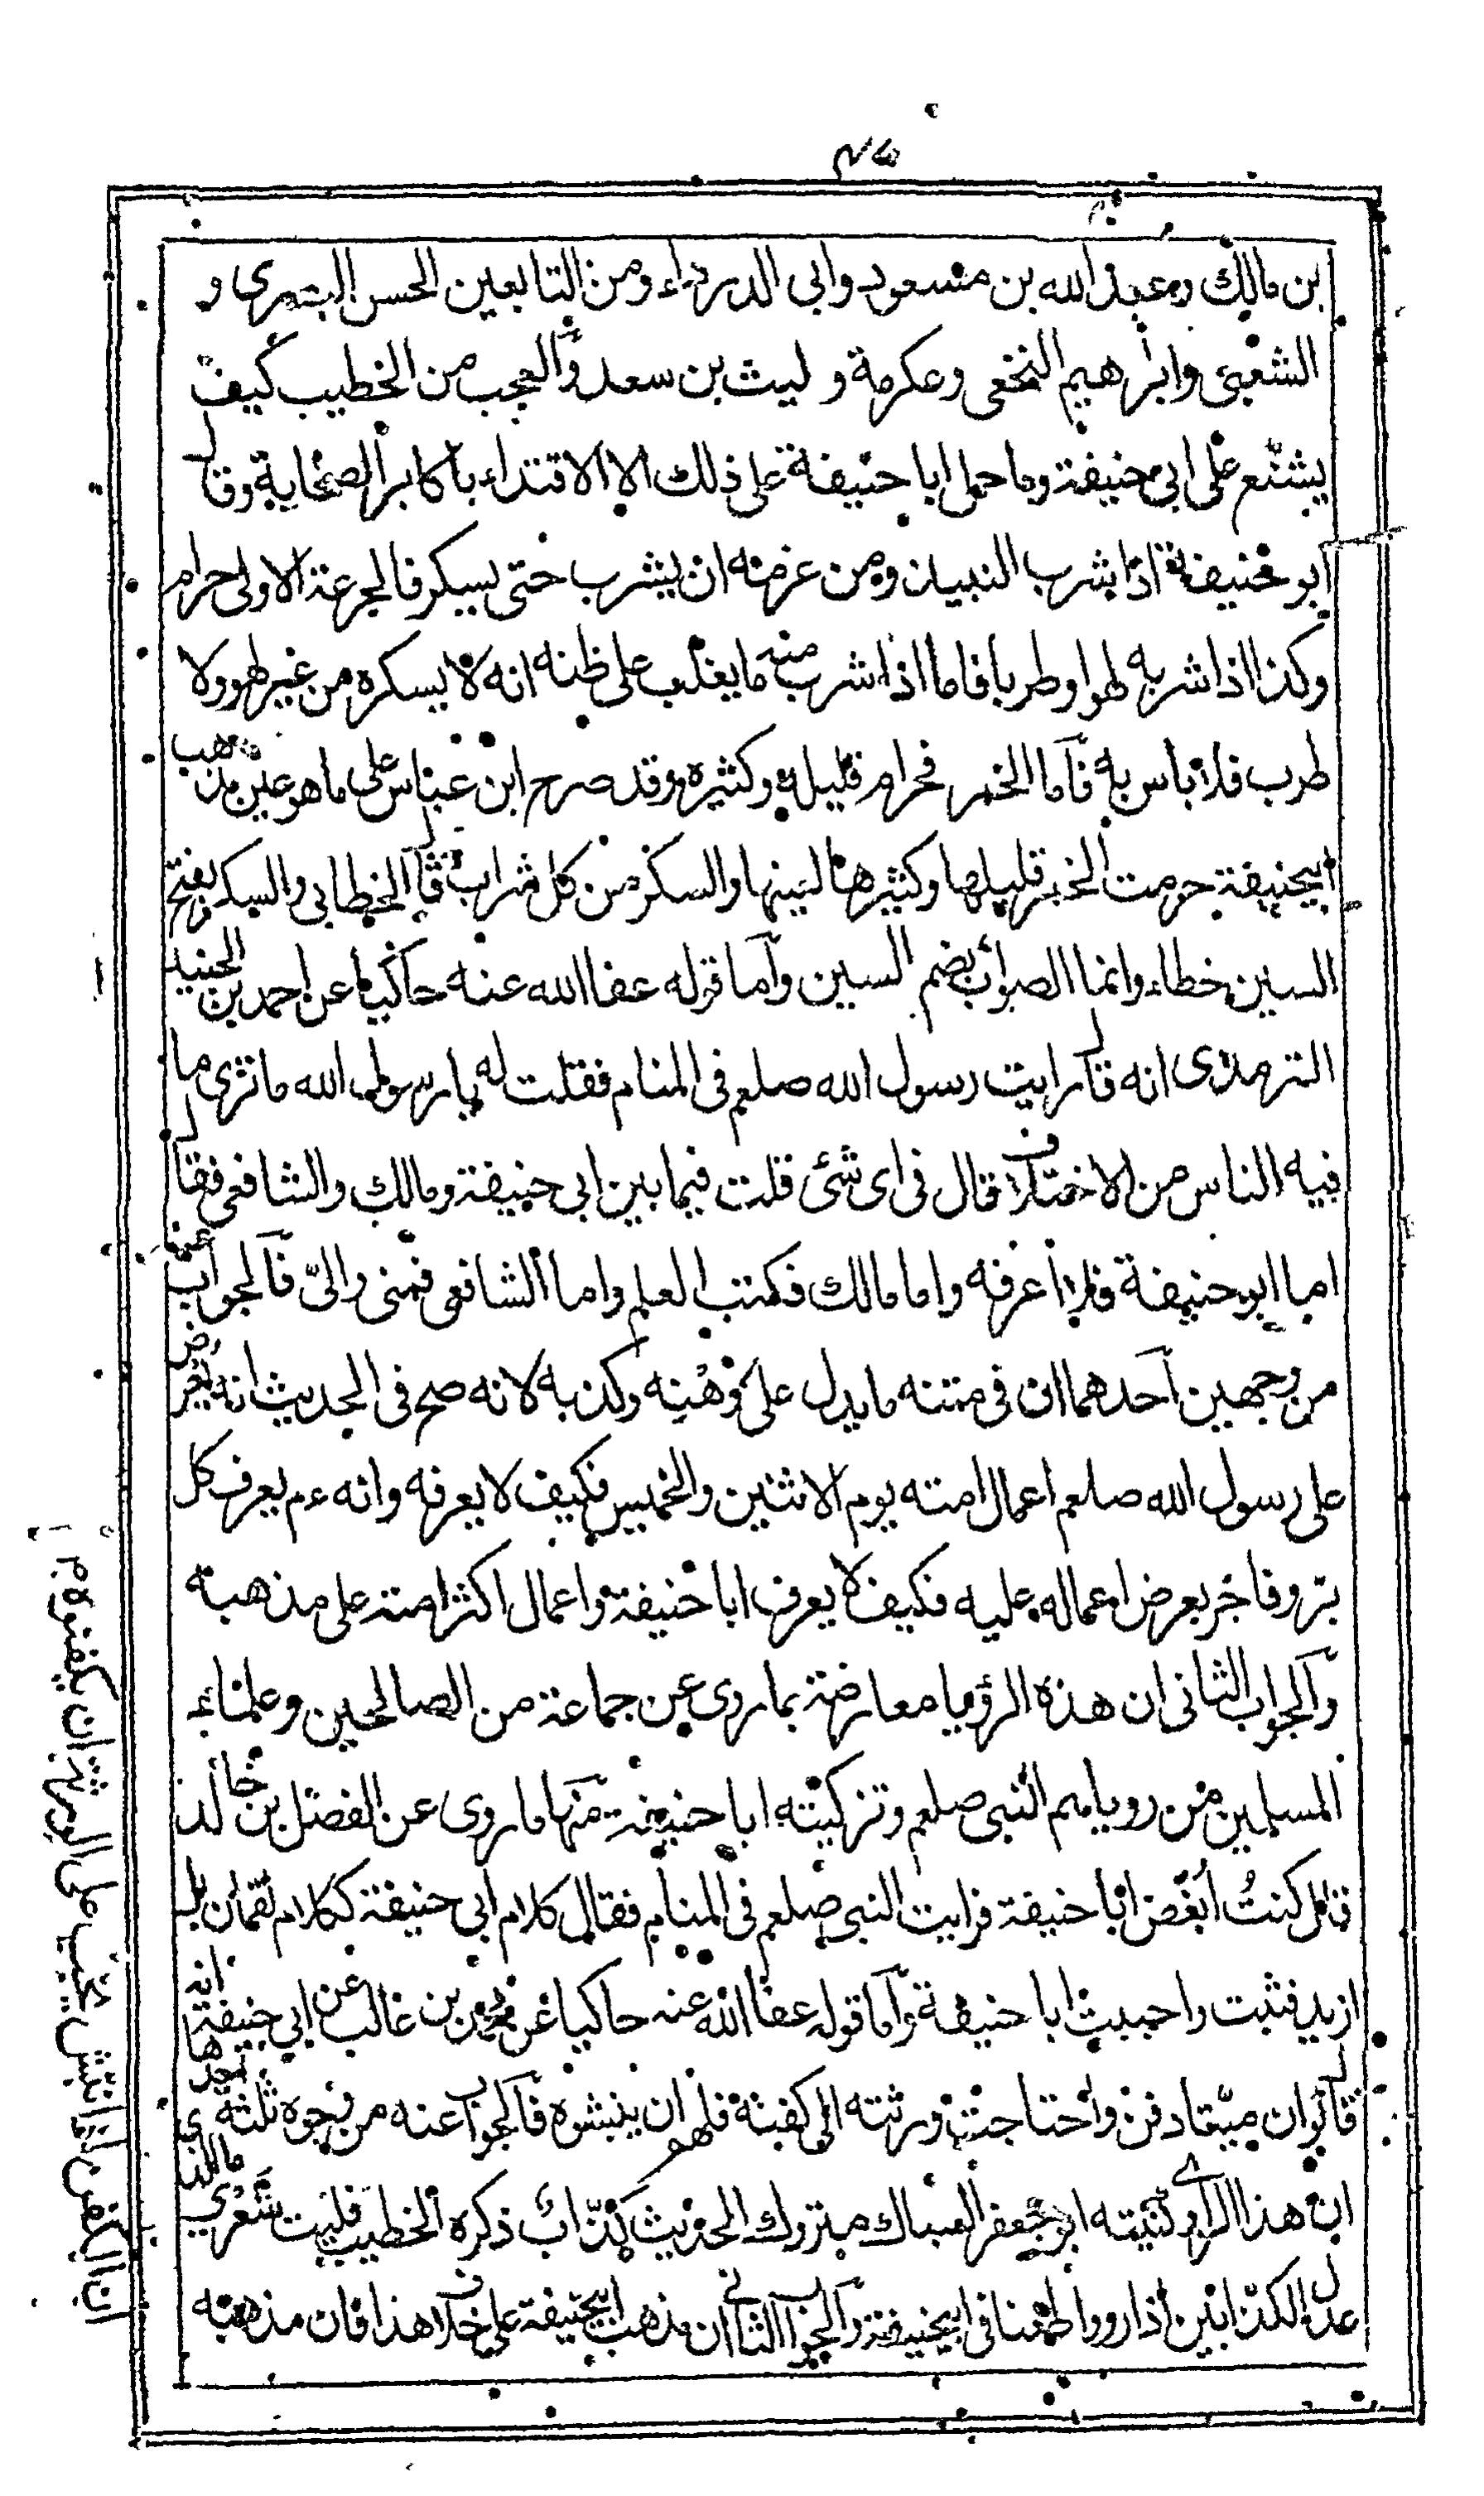 بن مالك وعبد الله بن مسعود وابى الدرداء ومن التابعين الحسن البصرى و
الشعبى وابراهيم النخعى وعكرمة و ليث بن سعد والعجب من الخطيب كيف
يشنّع على ابى حنيفة وما حمل ابا حنيفة على ذلك الا الاقتداء باكابر الصحابة وقال
ابو حنيفة اذا شرب النبيذ ومن غرضه ان يشرب حتى يسكر فالجرعة الاولى حرام
وكذا اذا شربه لهوا وطربا فاما اذا شرب منه ما يغلب على ظنه انه لا يسكره من غير لهو ولا
طرب فلا باس به فاما الخمر فحرام قليله وكثيره وقد صرح ابن عباس على ما هو عين مذهب
ابيحنيفة حرمت الخمر قليلها وكثيرها لعينها والسكر من كل شراب قال الخطابى والسكر بفتح
السين خطاء وانما الصواب بضم السين واما قوله عفا الله عنه حاكيا عن احمد بن الجنيد
الترمذى انه قال رايت رسول الله صلعم فى المنام فقلت له يا رسول الله ما ترى ما
فيه الناس من الاختلاف قال فى اى شئ قلت فيما بين ابى حنيفة ومالك والشافعى فقال
اما ابو حنيفة فلا اعرفه واما مالك فكتب العلم واما الشافعى فمنى والىّ فالجواب عنه
من وجهين احدهما ان فى متنه ما يدل على وهنه وكذبه لانه صح فى الحديث انه يعرض
على رسول الله صلعم اعمال امته يوم الاثنين والخميس فكيف لا يعرفه وانه ءم يعرف كل
بر وفاجر بعرض اعماله عليه فكيف لا يعرف ابا حنيفة واعمال اكثر امته على مذهبه
والجواب الثانى ان هذه الرؤيا معارضة بما روى عن جماعة من الصالحين وعلماء
المسلمين من روياهم النبى صلعم وتزكيته ابا حنيفة منها ما روى عن الفضل بن خالد
قال كنتُ اُبغض ابا حنيفة فرايت النبى صلعم فى المنام فقال كلام ابى حنيفة ككلام لقمان بل
ازيد فتبت واحببت ابا حنيفة واما قوله عفا الله عنه حاكيا عن محمد بن غالب عن ابى حنيفة انه
قال لو ان ميتا دفن واحتاجت ورثته الى كفنه فلهم ان ينبشوه فالجواب عنه من وجوه ثلثة احدها
ان هذا الراوى كنيته ابو جعفر متروك الحديث كذّاب ذكره الخطيب فليت شَعْرى ما الذى
عدل الكذابين اذا رووا طعنا فى ابيحنيفة والجواب الثانى ان مذهب ابيحنيفة على خلاف هذا فان مذهبه